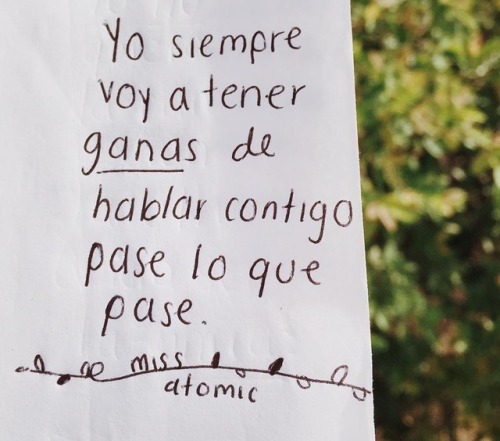 Yo siempre
voy a tener
ganas de
hablar contigo
pase lo que
pase.
miss
atomic